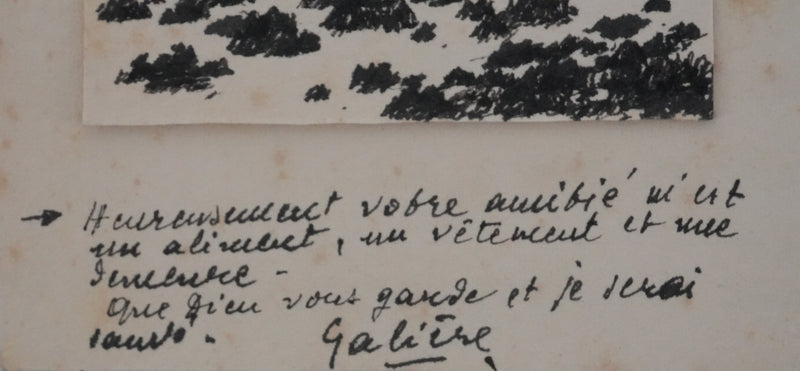 → Heureusement votre amitié m'est
un aliment, un vêtement et une
demeure -
Que Dieu vous garde et je serai
sauvé.
Galitre